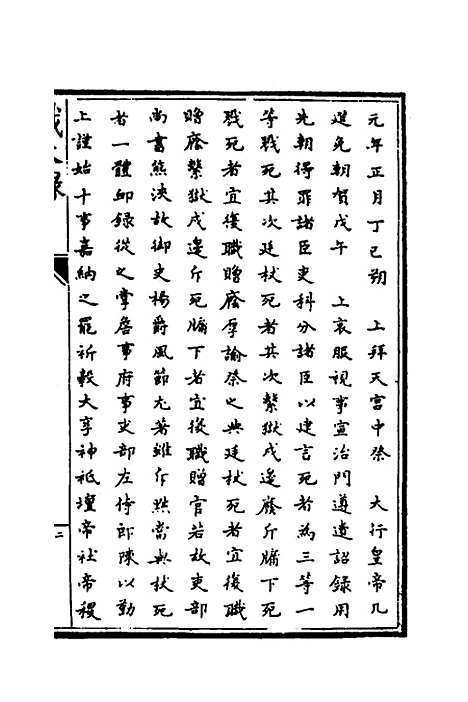 元年正月丁巳朔　上拜天宫中祭　大行皇帝几
筵免朝賀戊午　上衰服視事宣治門遵遺詔録用
先朝得罪諸臣吏科分諸臣以建言死者為三等一
等戮死其次廷杖死者其次繫獄戍邊廢斥牖下死
戮死者宜復職贈廕厚諭祭之典廷杖死者宜復職
贈廕繫獄戍邊斥死牖下者宜復職贈官若故吏部
尚書熊浹故御史楊爵風節尤著雖斥與當與杖死
者一體卹録從之掌詹事府事吏部左侍郎陳以勤
上謹始十事嘉納之罷祈穀大享神祗壇帝社帝稷
二